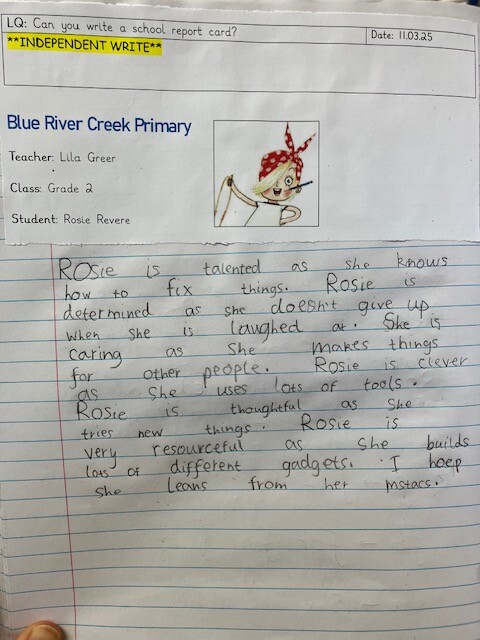 LQ: Can you write a school report card?
Date: 11.03.25
**INDEPENDENT WRITE**
Blue River Creek Primary
Teacher: Lila Greer
Class: Grade 2
Student: Rosie Revere
Rosie is talented as she knows
how to fix things. Rosie is
determined as she doesn't give up
when she is laughed at. She is
caring as She makes things
for other people. Rosie is clever
as She uses lots of tools.
Rosie is thoughtful as She
tries new things. Rosie is
very resourceful as She builds
lots of different gadgets. I hoep
she leans from her mstacs.